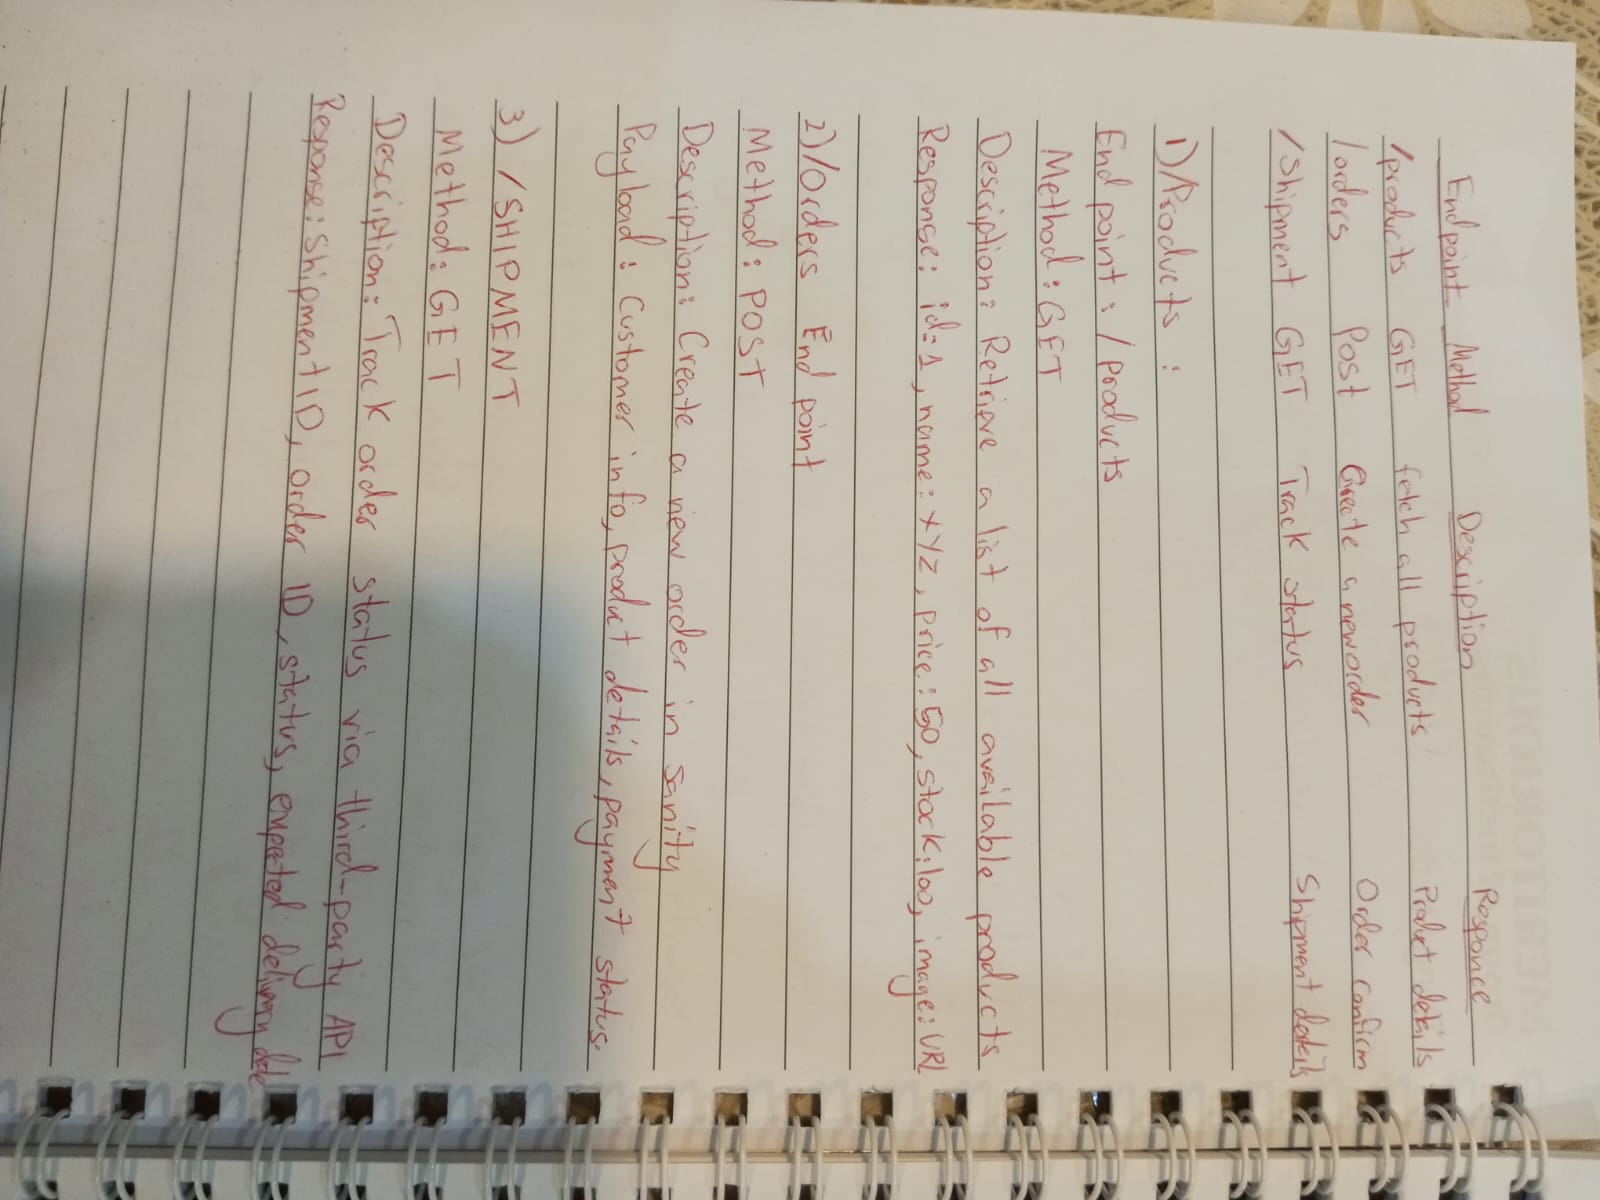 Endpoint Method Description Responce
/products GET fetch all products Product details
/orders Post Create a new order Order confirm
/Shipment GET Track status Shipment details
1)/Products :
End point : /products
Method : GET
Description : Retrieve a list of all available products
Response : id=1, name: XYZ, price : 50, stock:100, image: URL
2)/Orders End point
Method : POST
Description : Create a new order in sanity
Payload : Customer info, product details, payment status.
3) /SHIPMENT
Method : GET
Description : Track order status via third-party API
Response : Shipment ID, order ID, status, expected delivery date